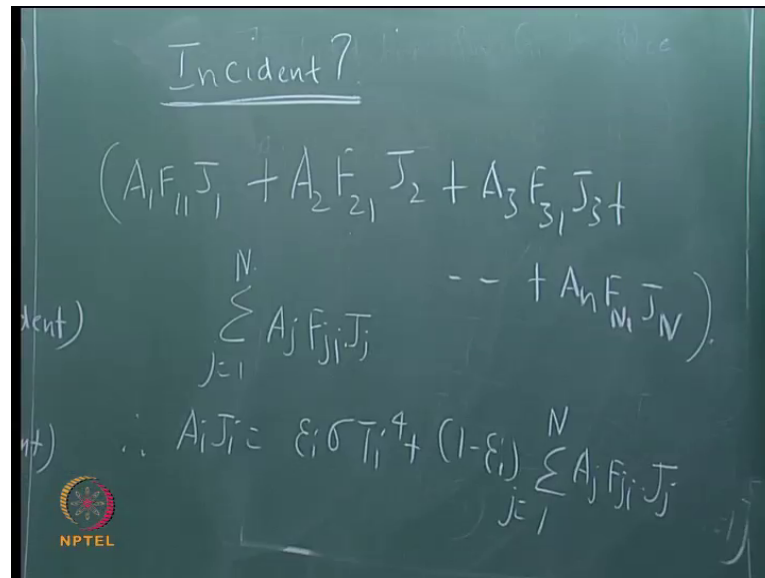 Incident?
(A₁F₁₁J₁ + A₂F₂₁J₂ + A₃F₃₁J₃+
-- + AₙF_{N₁}J_N).
dent)
∑_{j=1}^{N} A_jF_{ji}J_j
nt)
∴ A_iJ_i = ε_iσT_i⁴+ (1-ε_i) ∑_{j=1}^{N} A_jF_{ji}J_j
NPTEL